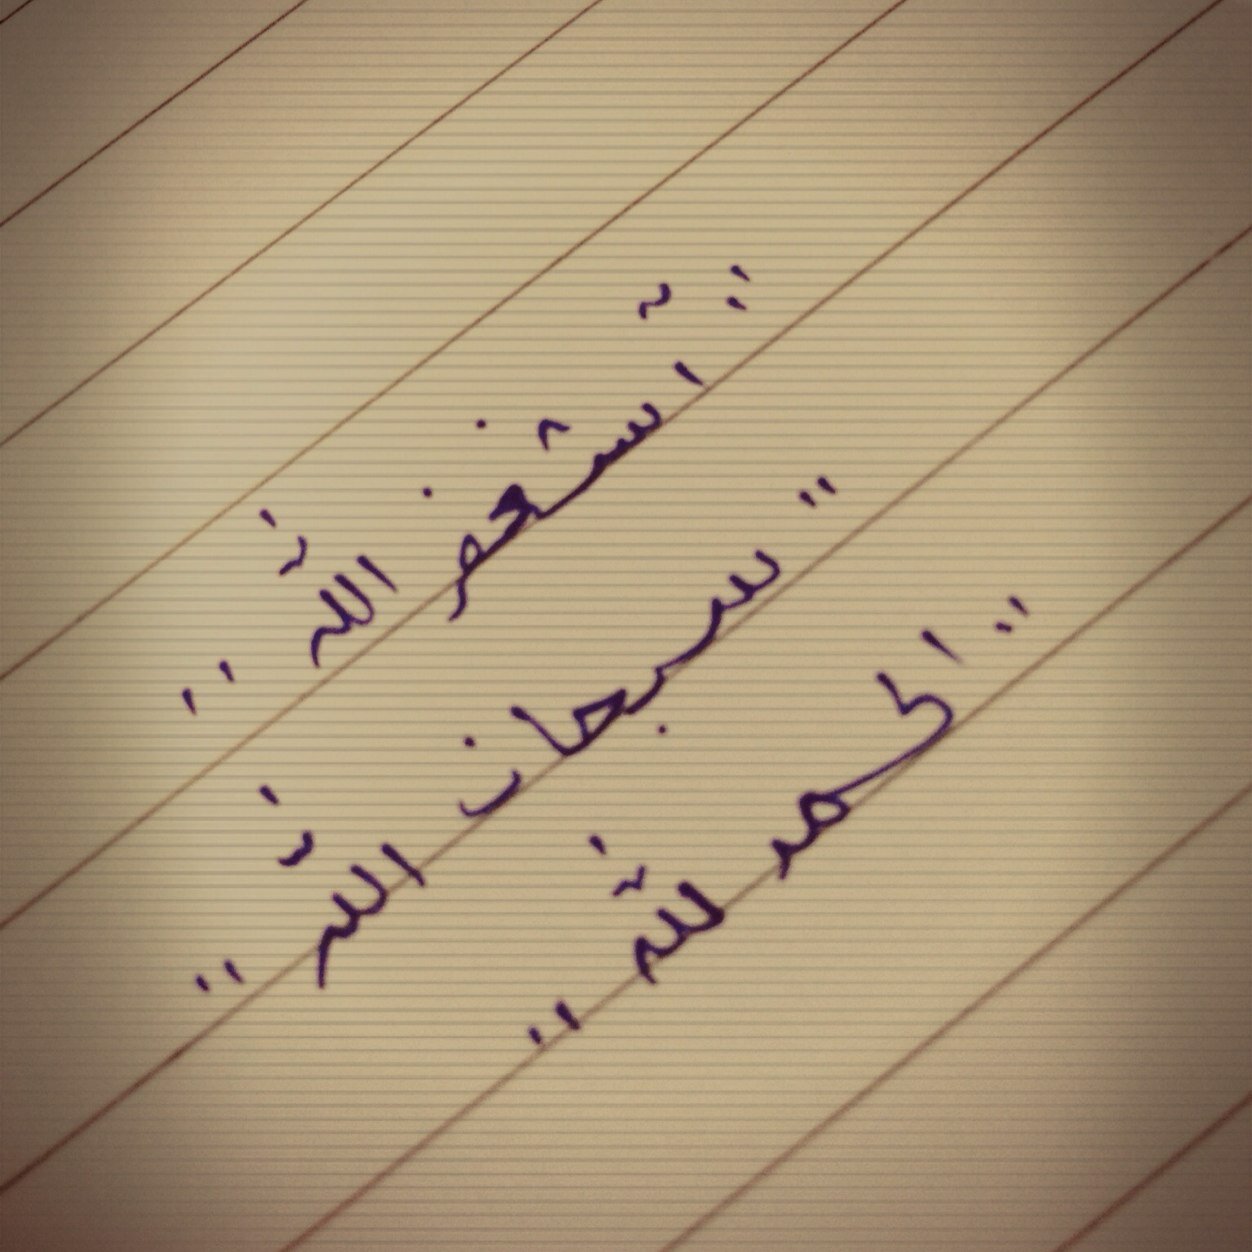 "استغفر اللّٰه"
"سبحان اللّٰه"
"الحمد للّٰه"